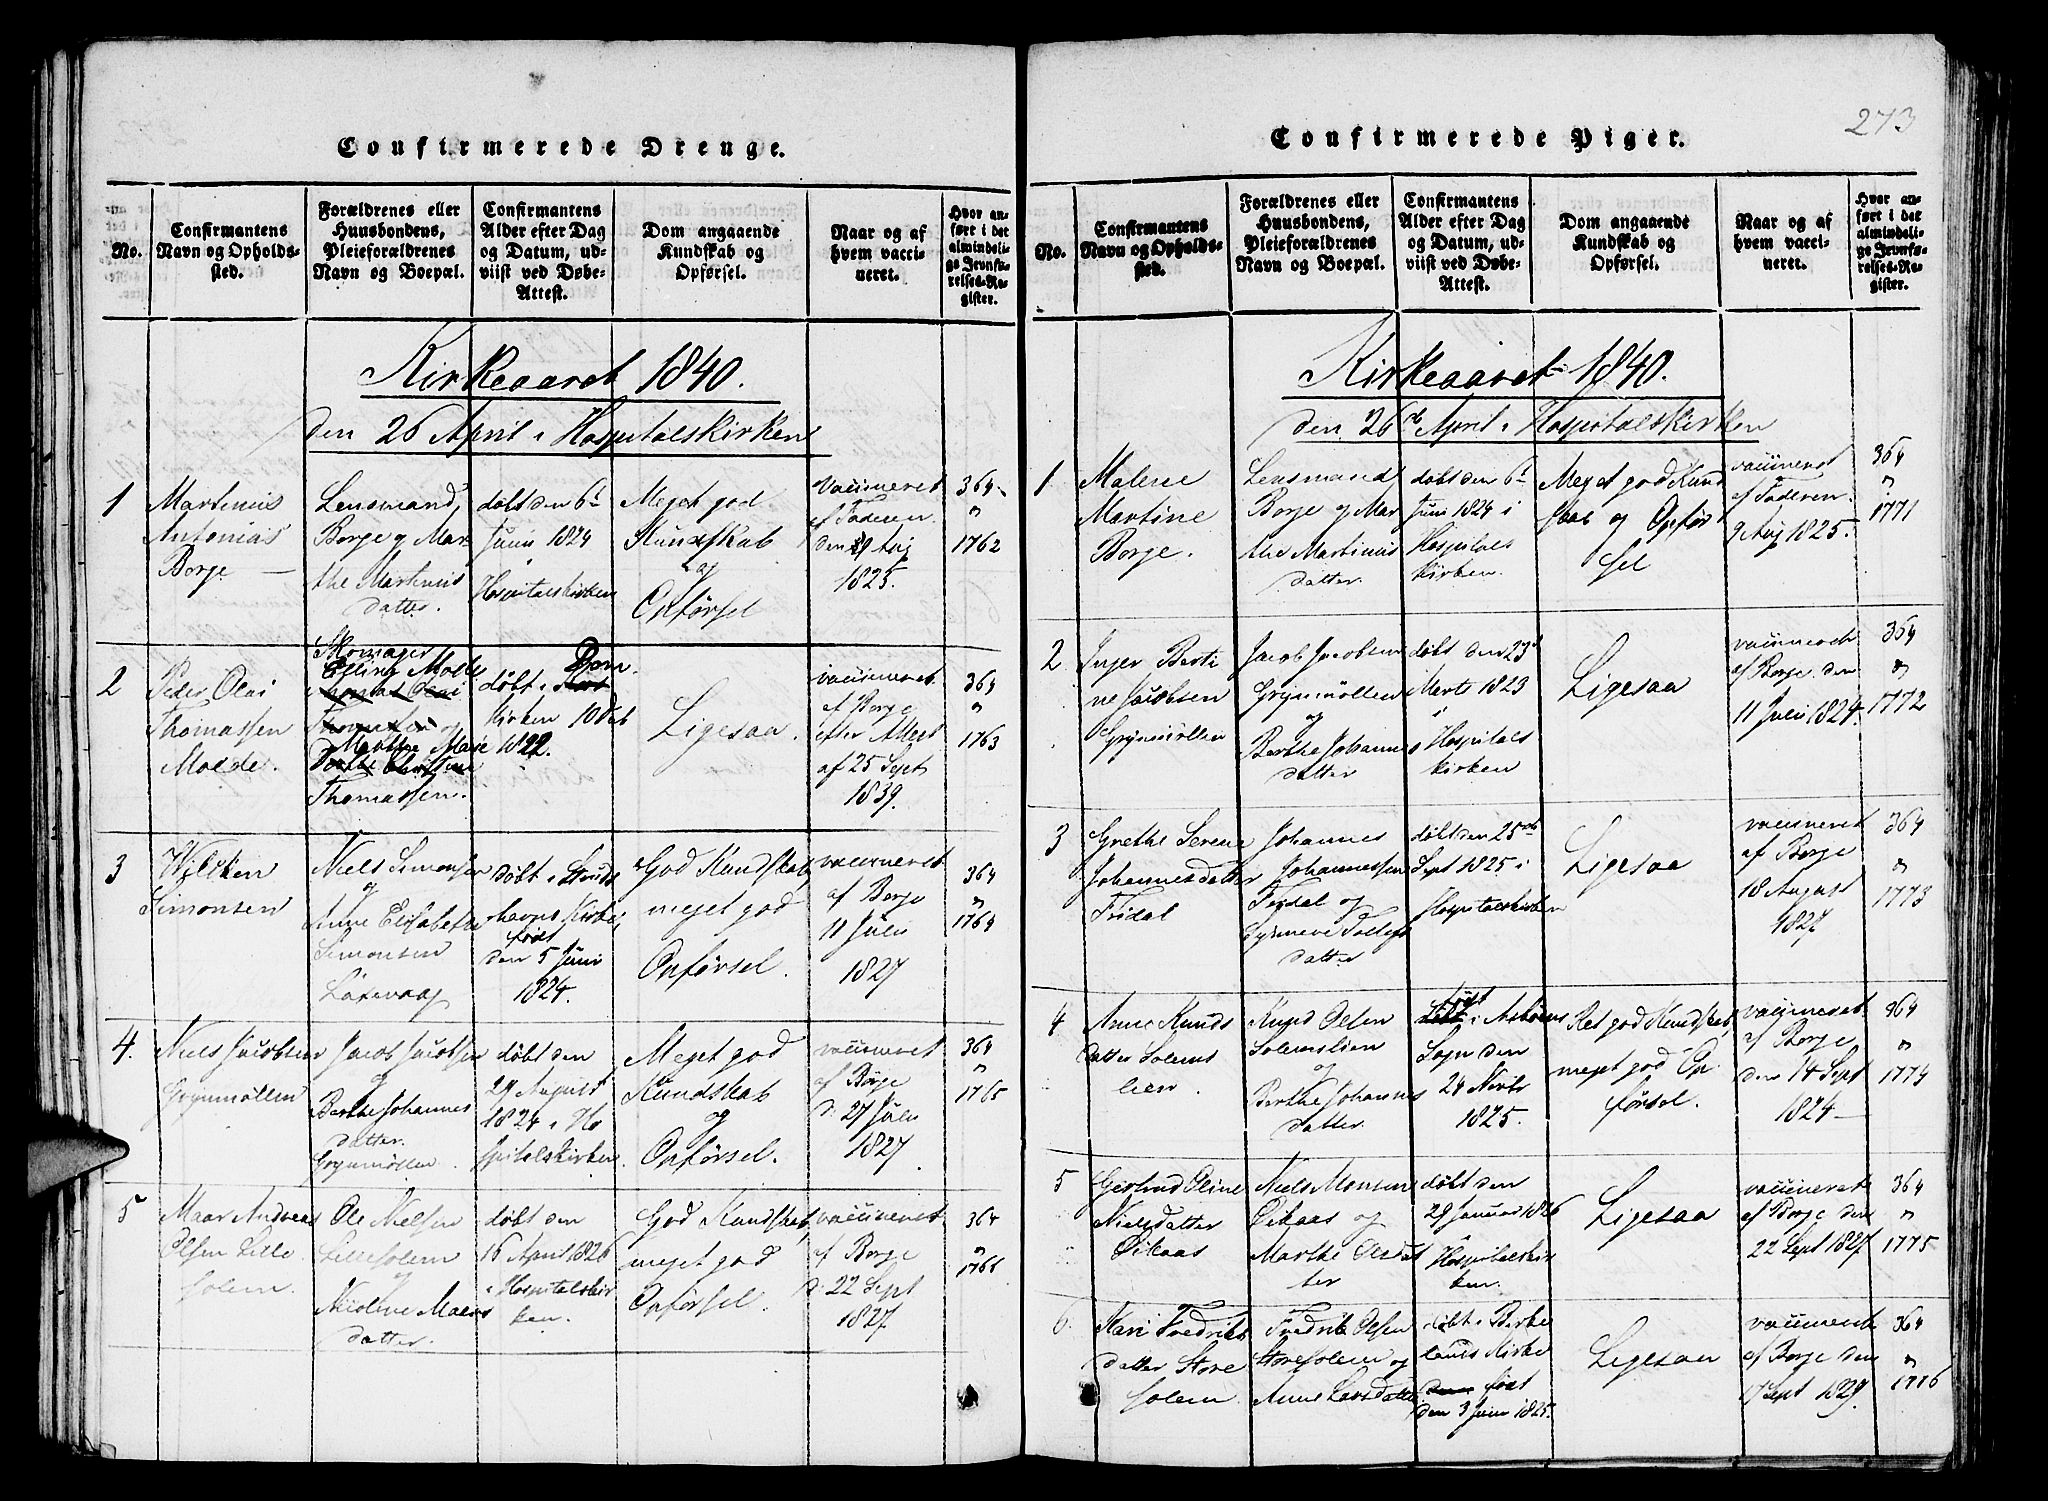 273
Confirmerede Drenge.
No.
Confirmantens
Navn og Opholds-
sted.
Forældrenes eller
Huusbondens,
Pleieforældrenes
Navn og Boepæl.
Confirmantens
Alder efter Dag
og Datum, ud-
viist ved Døbe-
Attest.
Dom angaaende
Kundskab og
Opførsel.
Naar og af
hvem vacci-
neret.
Hvor an-
ført i det
almindeli-
ge Jevnfø-
relses-Re-
gister.
Kirkeaaret 1840.
den 26 April i Hospitalskirken
1
Martinius
Antonius
Borge
Lensmand
Borge og Mar-
the Martinus
datter.
døbt den 6t
Juni 1824
Hospitalskirken
Meget god
Kundskab
og
Opførsel
vaccineret
af Faderen
den 9 Aug
1825.
364
"
1762
2
Peder Olai
Thomassen
Molde.
Skomager
Elling Molde
Thomas Olai
Thomassen og
Marthe Marie
Dorthe Christine
Thomassen.
døbt i Dom
kirken 10 Feb
1822.
Ligesaa.
vaccineret
af Borge
efter Attest
af 25 Sept
1839.
364
"
1763
3
Wilken
Simonsen
Niels Simonsen
og
Anne Elisabeth
Simonsen
Laxevaag
døbt i Sunds
havns Kirke,
født
den 5 Juni
1824.
God Kundskab,
meget god
Opførsel.
vaccineret
af Borge
11 Juli
1827
364
"
1764
4.
Niels Jacobsen
Grynmöllen
Jacob Jacobsen
og
Berthe Johannes
datter.
Grynmöllen.
døbt den
29 August
1824 i Ho
spitalskirken.
Meget god
Kundskab
og
Opførsel.
vaccineret
af Börge
d: 27 Juli
1827
364
"
1765
5
Maar Andreas
Olsen Lille
solem.
Ole Nielsen
Lillesolem
og
Nicoline Maars
datter.
døbt den
16 April 1826
i Hospitalskir
ken.
God Kundskab,
meget god
Opførsel.
vaccineret
af Borge
d: 22 Sept
1827.
364
"
1766
Confirmerede Piger.
No.
Confirmantens
Navn og Opholds-
sted.
Forældrenes eller
Huusbondens,
Pleieforældrenes
Navn og Boepæl.
Confirmantens
Alder efter Dag
og Datum, ud-
viist ved Døbe-
Attest.
Dom angaaende
Kundskab og
Opførsel.
Naar og af
hvem vacci-
neret.
Hvor an-
ført i det
almindeli-
ge Jevnfø-
relses-Re-
gister.
Kirkeaaret 1840.
den 26d April i Hospitalskirken
1
Malene
Martine
Borge.
Lensmand
Borge og Mar
the Martinus
datter.
døbt den 6t
Juni 1824 i
Hospitals
kirken.
Meget god Kund
skab og Opför
sel
vaccineret
af Faderen
9 Aug 1825.
364
"
1771
2.
Inger Berti
ne Jacobsen
Grynmöllen
Jacob Jacobsen
Grynmöllen
og
Berthe Johannes
datter
døbt den 23d
Marts 1823
i
Hospitals
kirken
Ligesaa
vaccineret
af Borge den
11 Juli 1824.
364
"
1772
3
Grethe Serene
Johannesdatter
Tridal
Johannes
Johannessen
Tridal og
datter
døbt den 25de
Sept 1825 i
Hospitalskirken
Ligesaa
vaccineret
af Borge
18 August
1827.
364
"
1773
4
Anne Knuds
datter Solems
lien
Knud Olsen
Solemslien
og
Berthe Johannes
datter.
født i Asböens
Sogn den
24 Novbr
1825.
Ret god Kundskab
meget god Op
førsel.
vaccineret
af Borge
den 14 Sept
1824
364
"
1774
5
Gertrud Oline
Nielsdatter
Oikaas
Niels Monsen
Oikaas og
Marthe Olsdat
ter
døbt den
29 Januar 1826
Hospitalskir
ken.
Ligesaa
vaccineret
af Borge den
22 Sept 1827.
364
"
1775
6.
Kari Fredriks
datter Store
solem
Fredrik Olsen
Storesolem og
Anne Larsdatter
døbt i Birke
lands Kirke
den født
den 3 Juni 1825.
Ligesaa
vaccineret
af Borge den
17 Sept 1829.
364
"
1776